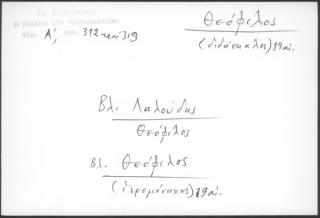 Τρ. Ευαγγελίδου
Η ΠΑΙΔΕΙΑ ΕΠΙ ΤΟΥΡΚΟΚΡΑΤΙΑΣ
τόμ. Α', σελ. 312 και 319
Θεόφιλος
(διδάσκαλος) 19 αι.
Βλ. Λαλούδης
Θεόφιλος
Βλ. Θεόφιλος
(ιερομόναχος) 19 αι.